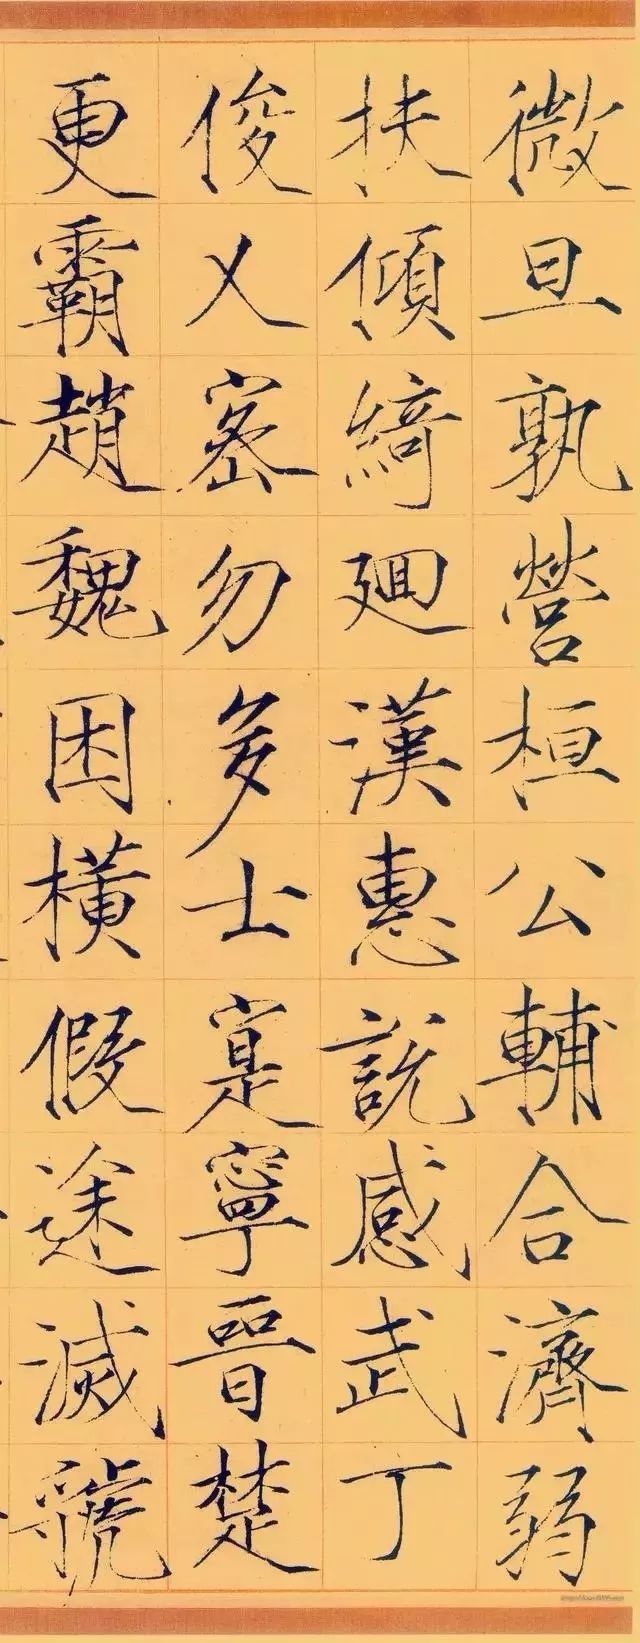 微旦孰營桓公輔合濟弱
扶傾綺迴漢惠說感武丁
俊乂密勿多士寔寧晉楚
更霸趙魏困橫假途滅虢